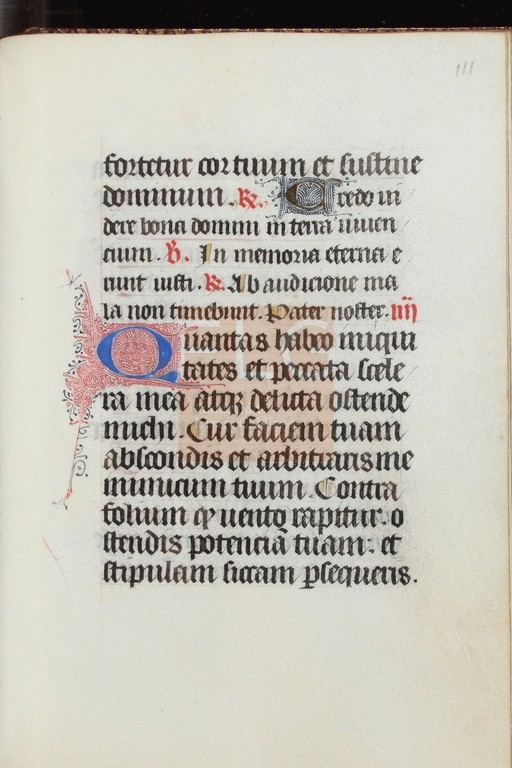 111
fortetur cor tuum et sustine
dominum. ℟. Credo vi
dere bona domini in terra viven
tium. ℣. In memoria eterna e
runt iusti. ℟. Ab audicione ma
la non timebunt. Pater noster. iiij
Quantas habeo iniqui
tates et peccata scele
ra mea atqꝫ delicta ostende
michi. Cur faciem tuam
abscondis et arbitraris me
inimicum tuum. Contra
folium qͩ vento rapitur. o
stendis potenciā tuam. et
stipulam siccam ꝑsequeris.